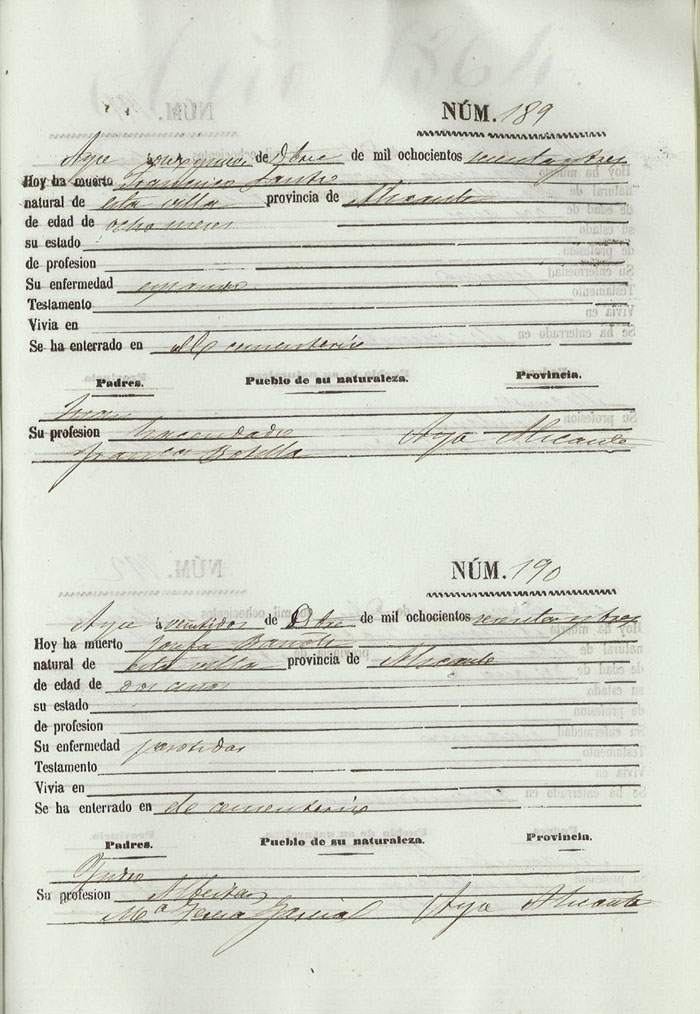 NÚM. 189
Aspe á de Dbre de mil ochocientos sesenta y tres
Hoy ha muerto Francisco
natural de esta villa provincia de Alicante
de edad de ocho meses
su estado
de profesion
Su enfermedad
Testamento
Vivia en
Se ha enterrado en cementerio
Padres. Pueblo de su naturaleza. Provincia.
Juan
Su profesion hacendado Alicante
Franca Botella
NÚM. 190
á veintidos de Dbre de mil ochocientos sesenta y tres
Hoy ha muerto Josefa
natural de esta villa provincia de Alicante
de edad de dos años
su estado
de profesion
Su enfermedad parotidas
Testamento
Vivia en
Se ha enterrado en cementerio
Padres. Pueblo de su naturaleza. Provincia.
Pedro
Su profesion Albeitar
Mª Teresa Alicante